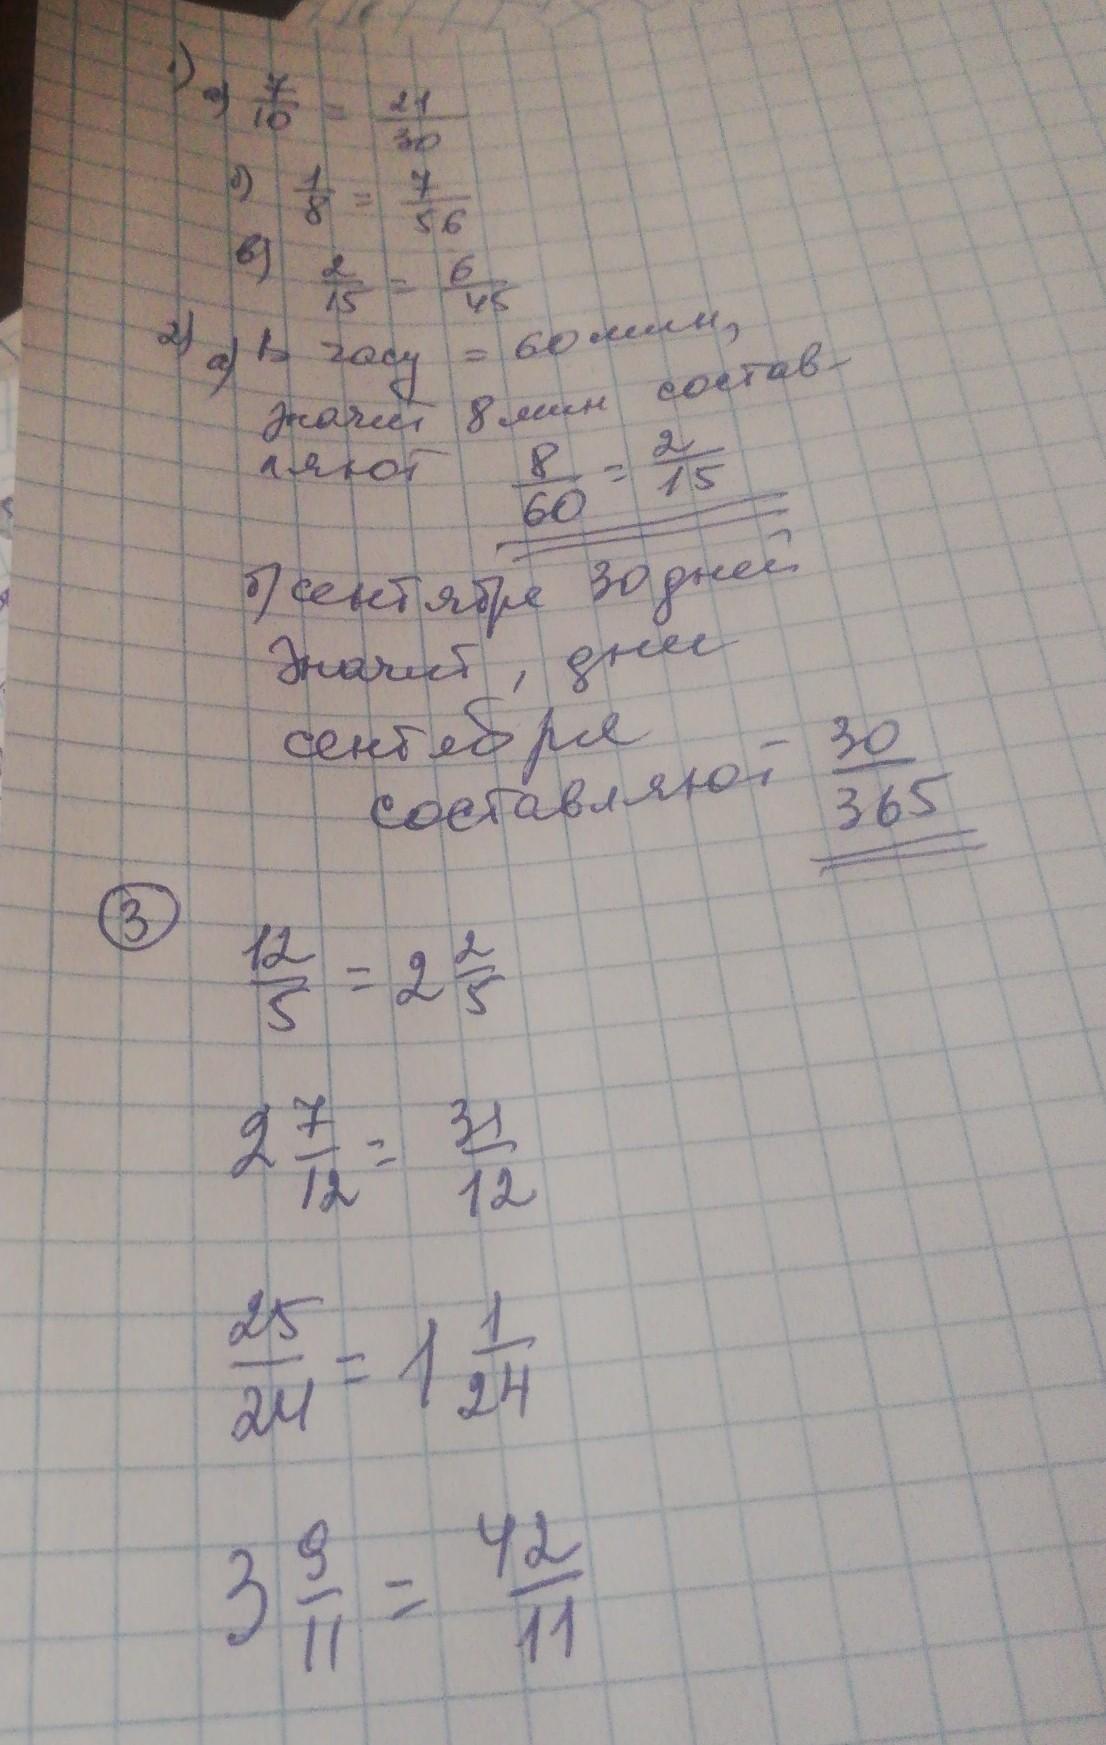 1) а) 7/10 = 21/30
б) 1/8 = 7/56
в) 2/15 = 6/45
2) а) В часу = 60 мин,
значит 8 мин состав-
ляют 8/60 = 2/15
б) сентябре 30 дней
Значит, дни
сентября
составляют 30/365
3
12/5 = 2 2/5
2 7/12 = 31/12
25/24 = 1 1/24
3 9/11 = 42/11